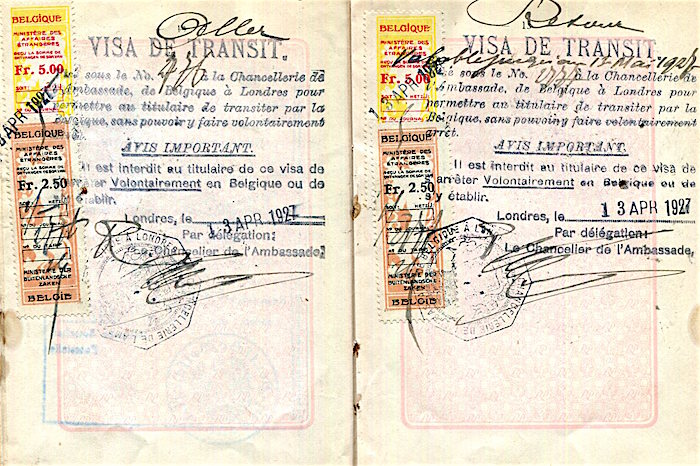 Aller
VISA DE TRANSIT.
sous le No. à la Chancellerie de
l'Ambassade, de Belgique à Londres pour
permettre au titulaire de transiter par la
Belgique, sans pouvoir y faire volontairement
arrêt.
AVIS IMPORTANT.
Il est interdit au titulaire de ce visa de
arrêter Volontairement en Belgique ou de
établir.
Londres, le 13 APR 1927
Par délégation:
Le Chancelier de l'Ambassade,
BELGIQUE
MINISTÈRE DES
AFFAIRES
ÉTRANGÈRES
REÇU LA SOMME DE
Fr. 5.00
APR 1927
BELGIQUE
MINISTÈRE DES
AFFAIRES
ÉTRANGÈRES
REÇU LA SOMME DE
Fr. 2.50
MINISTERIE DER
BUITENLANDSCHE
ZAKEN
BELGIE
Retour
VISA DE TRANSIT.
Valable jusqu'au 12 Mai 1927
sous le No. à la Chancellerie
d'Ambassade, de Belgique à Londres pour
permettre au titulaire de transiter par la
Belgique, sans pouvoir y faire volontairement
arrêt.
AVIS IMPORTANT.
Il est interdit au titulaire de ce visa de
arrêter Volontairement en Belgique ou de
s'y établir.
Londres, le 13 APR 1927
Par délégation:
Le Chancelier de l'Ambassade,
BELGIQUE
MINISTÈRE DES
AFFAIRES
ÉTRANGÈRES
REÇU LA SOMME DE
Fr. 5.00
BELGIQUE
MINISTÈRE DES
AFFAIRES
ÉTRANGÈRES
REÇU LA SOMME DE
Fr. 2.50
MINISTERIE DER
BUITENLANDSCHE
ZAKEN
BELGIE